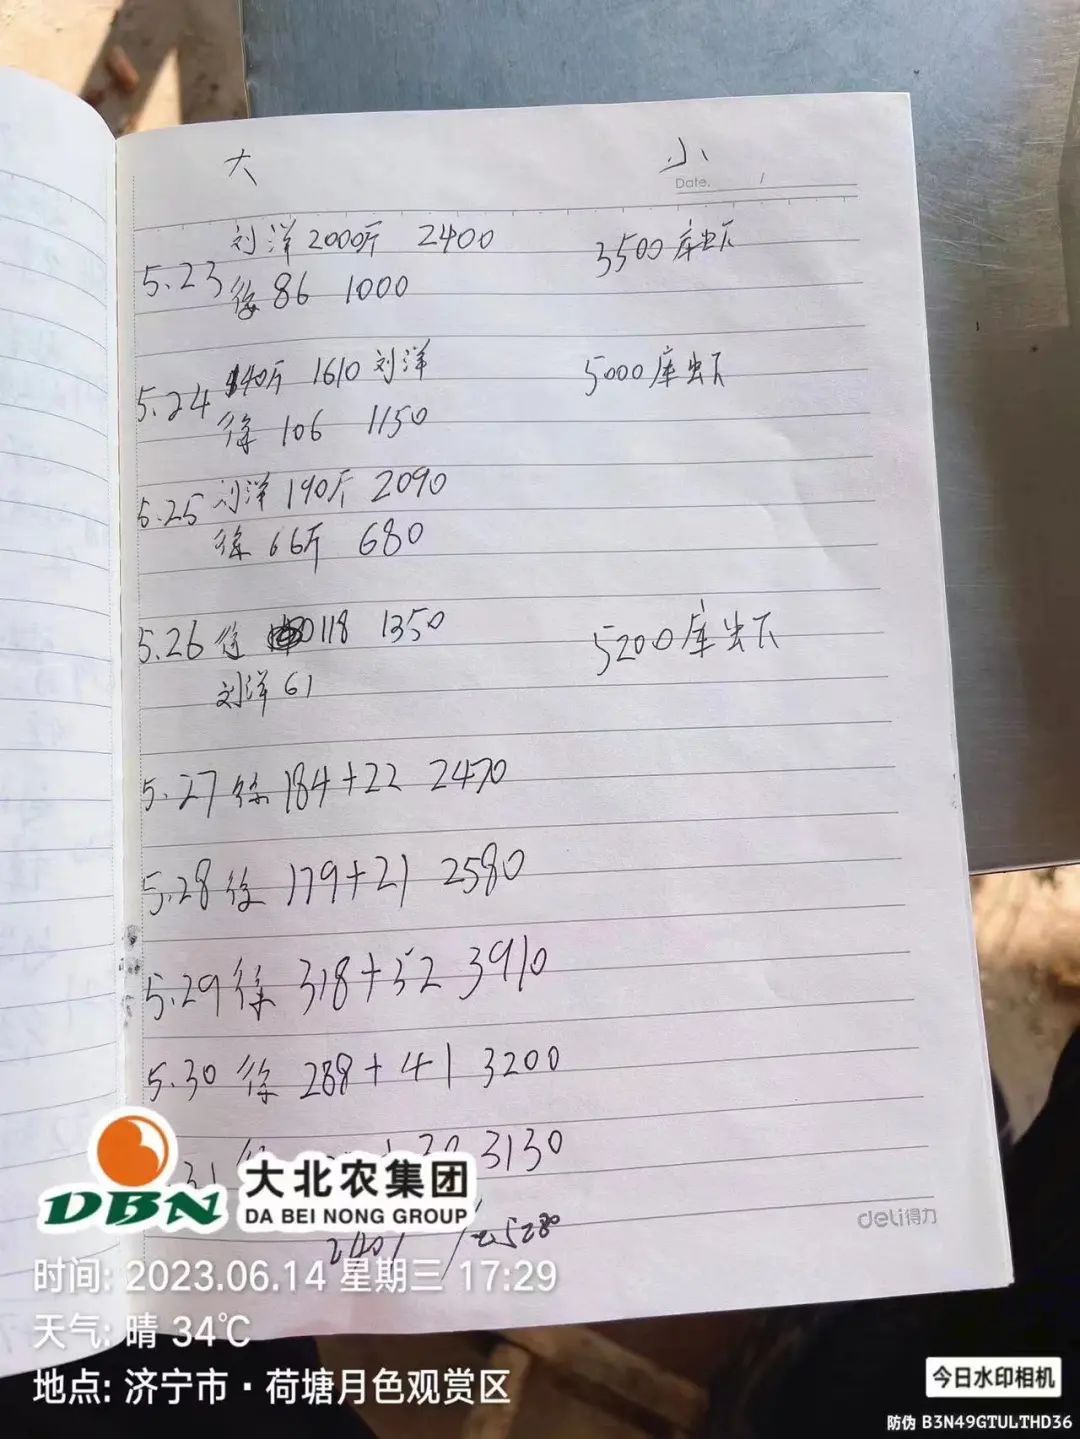 大 小
Date. /
刘洋 2000斤 2400 3500 库虾
5.23
徐 86 1000
140斤 1610 刘洋 5000 库虾
5.24
徐 106 1150
5.25 刘洋 190斤 2090
徐 66斤 680
5.26 徐 118 1350 5200 库虾
刘洋 61
5.27 徐 184+22 2470
5.28 徐 179+21 2580
5.29 徐 318+52 3910
5.30 徐 288+41 3200
31 3130
5280
deli得力
DBN 大北农集团
DA BEI NONG GROUP
时间: 2023.06.14 星期三 17:29
天气: 晴 34℃
地点: 济宁市·荷塘月色观赏区
今日水印相机
防伪 B3N49GTULTHD36